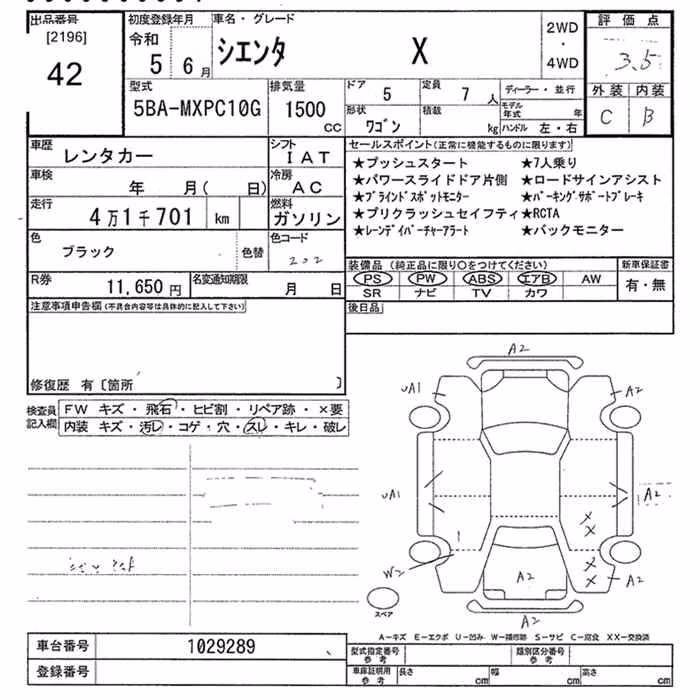 出品番号 初度登録年月 車名・グレード 評価点
[2196] 令和 2WD
42 5 6月 シエンタ X ・ 3.5
4WD
型式 排気量 ドア 5 定員 7 人 ディーラー・並行 外装 内装
5BA-MXPC10G 1500 CC 形状 ワゴン 積載 kg モデル年式 年 C B
ハンドル 左・右
車歴 レンタカー シフト IAT セールスポイント(正常に機能するものに限ります)
★プッシュスタート ★7人乗り
車検 年 月( 日) 冷房 AC ★パワースライドドア片側 ★ロードサインアシスト
★ブラインドスポットモニター ★パーキングサポートブレーキ
走行 4万1千701 km 燃料 ガソリン ★プリクラッシュセイフティ ★RCTA
★レーンデイパーチャーアラート ★バックモニター
色 ブラック 色替 色コード 202
装備品 (純正品に限り○をつけてください) 新車保証書
R券 11,650 円 名変通知期限 月 日 PS PW ABS エアB AW 有・無
SR ナビ TV カワ
注意事項申告欄(不具合内容等は具体的に記入して下さい) 後日品
修復歴 有〔箇所 〕
検査員 FW キズ・飛石・ヒビ割・リペア跡・×要
記入欄 内装 キズ・汚レ・コゲ・穴・スレ・キレ・破レ
A2
UA1 A2
UA1 A2
X
X
W2 X
A2 X A2
スペア A2
A-キズ E-エクボ U-凹み W-補修跡 S-サビ C-腐食 XX-交換済
車台番号 1029289 型式指定番号 参考 類別区分番号 参考
登録番号 車庫証明用 参考 長さ cm 幅 cm 高さ cm